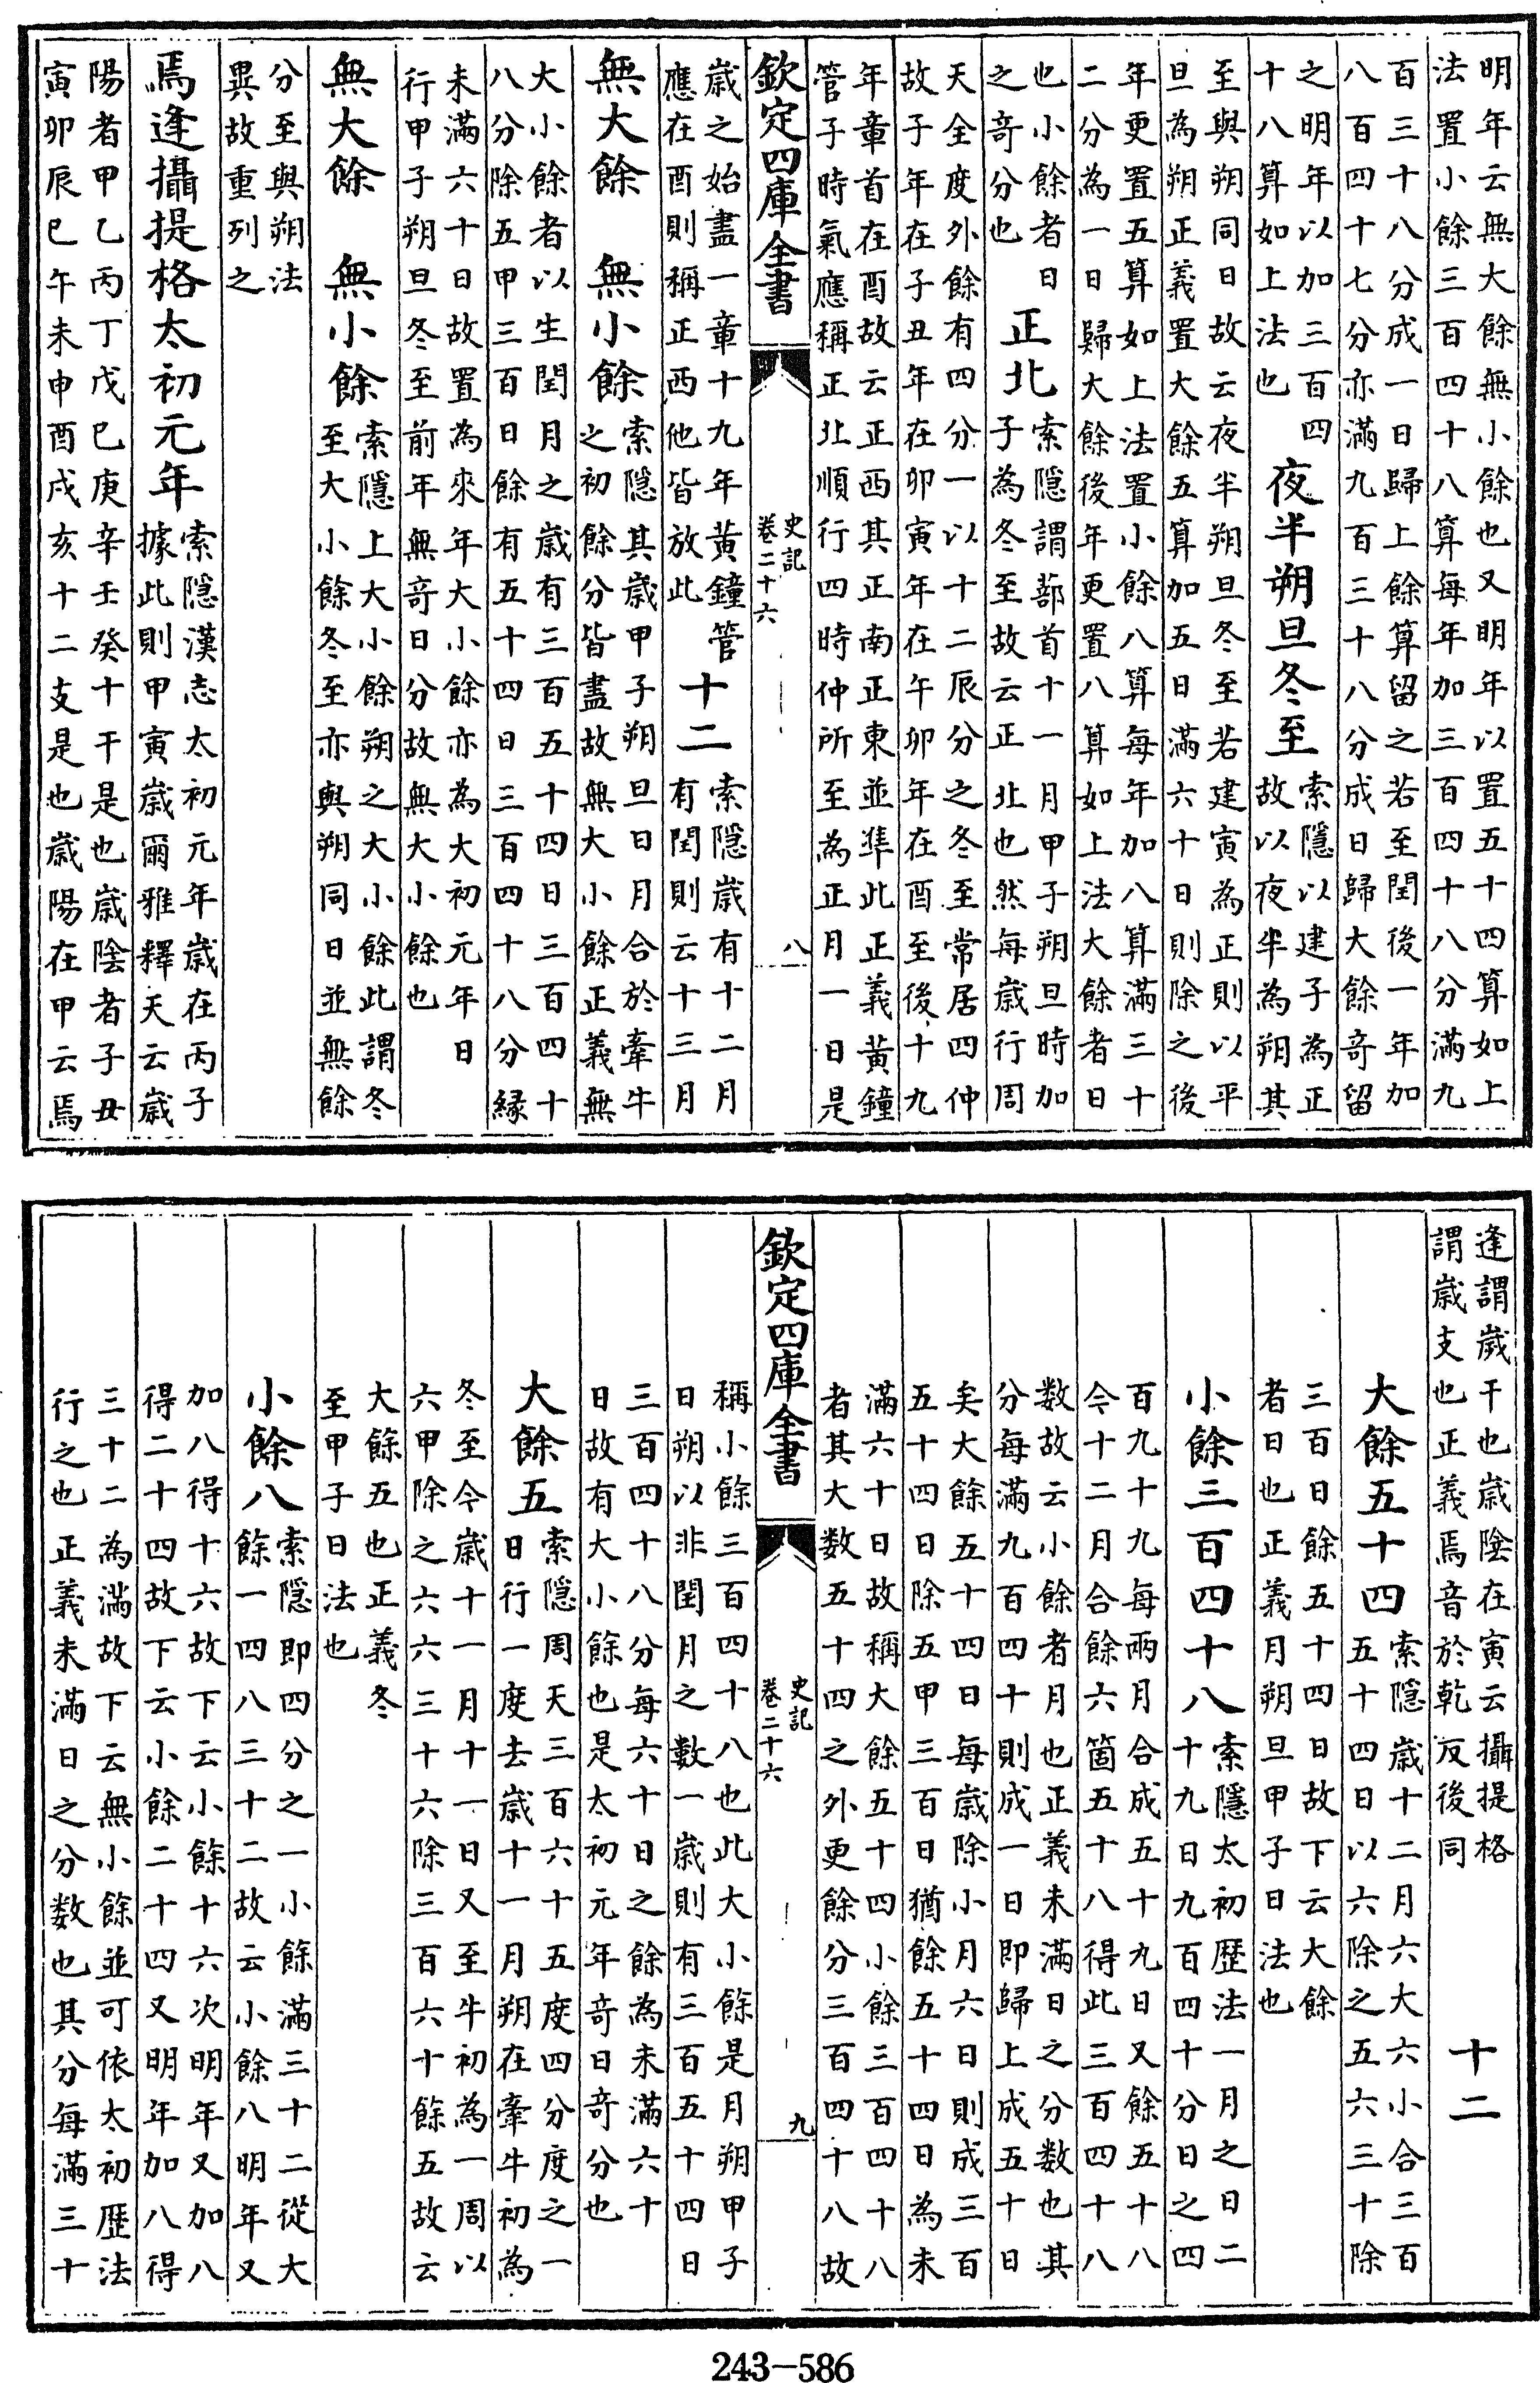 明年云無大餘無小餘也又明年以置五十四算如上
法置小餘三百四十八算每年加三百四十八分滿九
百三十八分成一日歸上餘算留之若至閏後一年加
八百四十七分亦滿九百三十八分成日歸大餘奇留
之明年以加三百四
十八算如上法也
夜半朔旦冬至
索隱以建子為正
故以夜半為朔其
至與朔同日故云夜半朔旦冬至若建寅為正則以平
旦為朔正義置大餘五算加五日滿六十日則除之後
年更置五算如上法置小餘八算每年加八算滿三十
二分為一日歸大餘後年更置八算如上法大餘者日
也小餘者日
之奇分也
正北
索隱謂蔀首十一月甲子朔旦時加
子為冬至故云正北也然每歲行周
天全度外餘有四分一以十二辰分之冬至常居四仲
故子年在子丑年在卯寅年在午卯年在酉至後十九
年章首在酉故云正西其正南正東並準此正義黃鐘
管子時氣應稱正北順行四時仲所至為正月一日是
欽定四庫全書
史記
卷二十六
八
歲之始盡一章十九年黃鐘管
應在酉則稱正西他皆放此
十二
索隱歲有十二月
有閏則云十三月
無大餘　無小餘
索隱其歲甲子朔旦日月合於牽牛
之初餘分皆盡故無大小餘正義無
大小餘者以生閏月之歲有三百五十四日三百四十
八分除五甲三百日餘有五十四日三百四十八分緣
未滿六十日故置為來年大小餘亦為大初元年日
行甲子朔旦冬至前年無奇日分故無大小餘也
無大餘　無小餘
索隱上大小餘朔之大小餘此謂冬
至大小餘冬至亦與朔同日並無餘
分至與朔法
異故重列之
焉逢攝提格太初元年
索隱漢志太初元年歲在丙子
據此則甲寅歲爾雅釋天云歲
陽者甲乙丙丁戊己庚辛壬癸十干是也歲陰者子丑
寅卯辰巳午未申酉戌亥十二支是也歲陽在甲云焉
逢謂歲干也歲陰在寅云攝提格
謂歲支也正義焉音於乾反後同
十二
大餘五十四
索隱歲十二月六大六小合三百
五十四日以六除之五六三十除
三百日餘五十四日故下云大餘
者日也正義月朔旦甲子日法也
小餘三百四十八
索隱太初歷法一月之日二
十九日九百四十分日之四
百九十九每兩月合成五十九日又餘五十八
今十二月合餘六箇五十八得此三百四十八
数故云小餘者月也正義未滿日之分数也其
分每滿九百四十則成一日即歸上成五十日
矣大餘五十四日每歲除小月六日則成三百
五十四日除五甲三百日猶餘五十四日為未
滿六十日故稱大餘五十四小餘三百四十八
者其大数五十四之外更餘分三百四十八故
欽定四庫全書
史記
卷二十六
九
稱小餘三百四十八也此大小餘是月朔甲子
日朔以非閏月之數一歲則有三百五十四日
三百四十八分每六十日之餘為未滿六十
日故有大小餘也是太初元年奇日奇分也
大餘五
索隱周天三百六十五度四分度之一
日行一度去歲十一月朔在牽牛初為
冬至今歲十一月十一日又至牛初為一周以
六甲除之六六三十六除三百六十餘五故云
大餘五也正義冬
至甲子日法也
小餘八
索隱即四分之一小餘滿三十二從大
餘一四八三十二故云小餘八明年又
加八得十六故下云小餘十六次明年又加八
得二十四故下云小餘二十四又明年加八得
三十二為滿故下云無小餘並可依太初歷法
行之也正義未滿日之分数也其分每滿三十
243-586